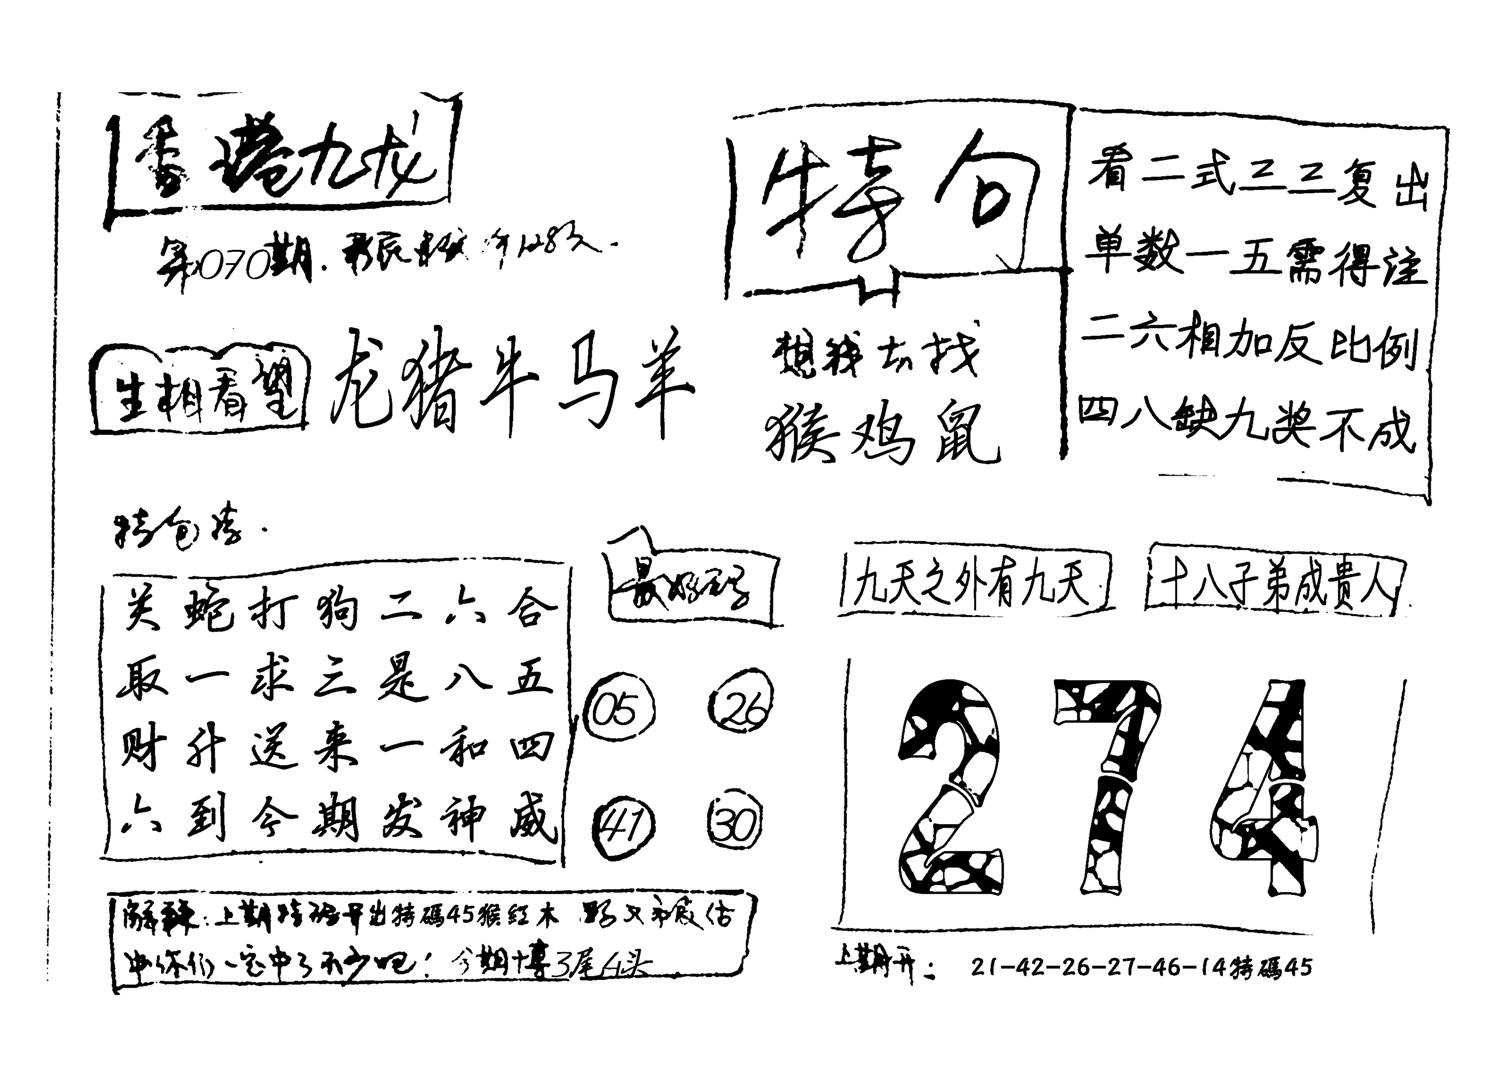 香港九龙
第070期.
生相看望
龙猪牛马羊
特句
想我去找
猴鸡鼠
看二式三三复出
单数一五需得注
二六相加反比例
四八缺九奖不成
关蛇打狗二六合
取一求三是八五
财升送来一和四
六到今期发神威
最好码
05 26
41 30
九天之外有九天
十八子弟成贵人
274
上期特码开出特碼45猴红木
你们一定中了不少吧！今期博3尾4头
上期开：21-42-26-27-46-14特碼45